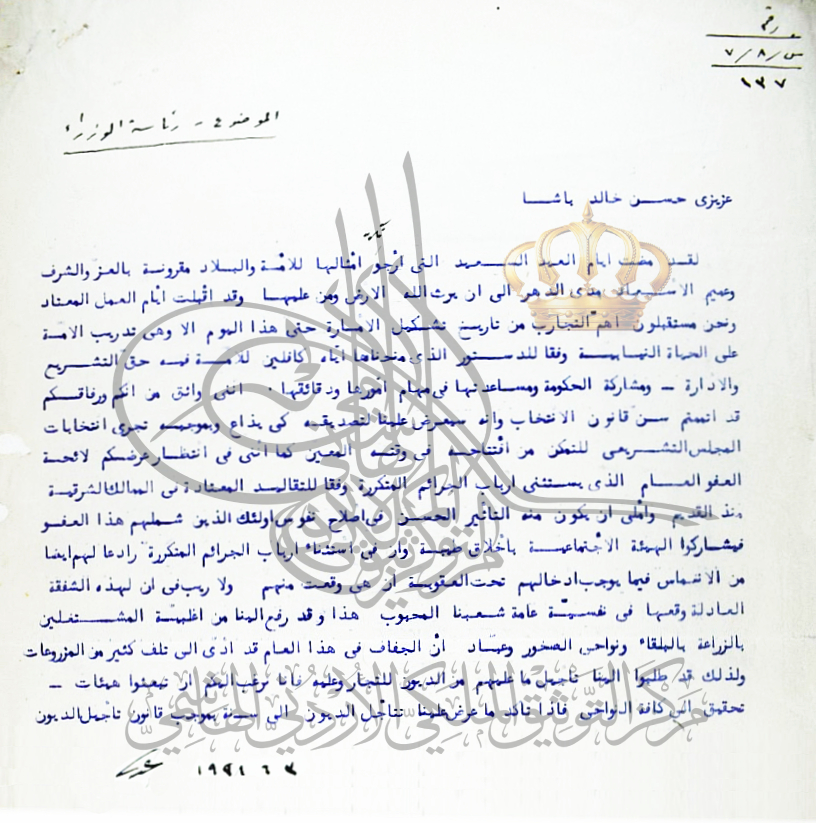 رقم
س/٨/٧
١٣٧
الموضوع - رئاسة الوزراء
عزيزى حسن خالد باشا
لقد مضت ايام العيد السعيد التى ارجو امثالها للامة والبلاد مقرونة بالعز والشرف
وعميم الاسعاد مدى الدهر الى ان يرث الله الارض ومن عليها وقد اقبلت ايام العمل المعتاد
ونحن مستقبلون اهم التجارب من تاريخ تشكيل الامارة حتى هذا اليوم الا وهى تدريب الامة
على الحياة النيابية وفقا للدستور الذى منحناها اياه كافلين للامة فيه حق التشريع
والادارة - ومشاركة الحكومة ومساعدتها فى مهام امورها ودقائقها . اننى واثق من انكم ورفاقكم
قد اتممتم سن قانون الانتخاب وانه سيعرض علينا لتصديقه كى يذاع وبموجبه تجرى انتخابات
المجلس التشريعى للتمكن من افتتاحه فى وقته المعين كما اننى فى انتظار عرضكم لائحة
العفو العام الذى يستثنى ارباب الجرائم المتكررة وفقا للتقاليد المعتادة فى الممالك الشرقية
منذ القديم واملى ان يكون منه التاثير الحسن فى اصلاح نفوس اولئك الذين شملهم هذا العفو
فيشاركوا الهيئة الاجتماعية باخلاق طيبة وان فى استثناء ارباب الجرائم المتكررة رادعا لهم ايضا
من الانغماس فيما يوجب ادخالهم تحت العقوبة ان هى وقعت منهم ولا ريب فى ان لهذه الشفقة
العادلة وقعها فى نفسية عامة شعبنا المحبوب هذا وقد رفع الينا من اغلبية المشتغلين
بالزراعة بالبلقاء ونواحى الصخور وعباد ان الجفاف فى هذا العام قد ادى الى تلف كثير من المزروعات
ولذلك قد طلبوا الينا تاجيل ما عليهم من الديون للتجار وعليه فانا نرغب اليكم ان تبعثوا هيئات -
تحقيق الى كافة النواحى فاذا تاكد ما عرض علينا تتاجل الديون الى سنة بموجب قانون تاجيل الديون
مركز التوثيق الملكي الأردني الهاشمي